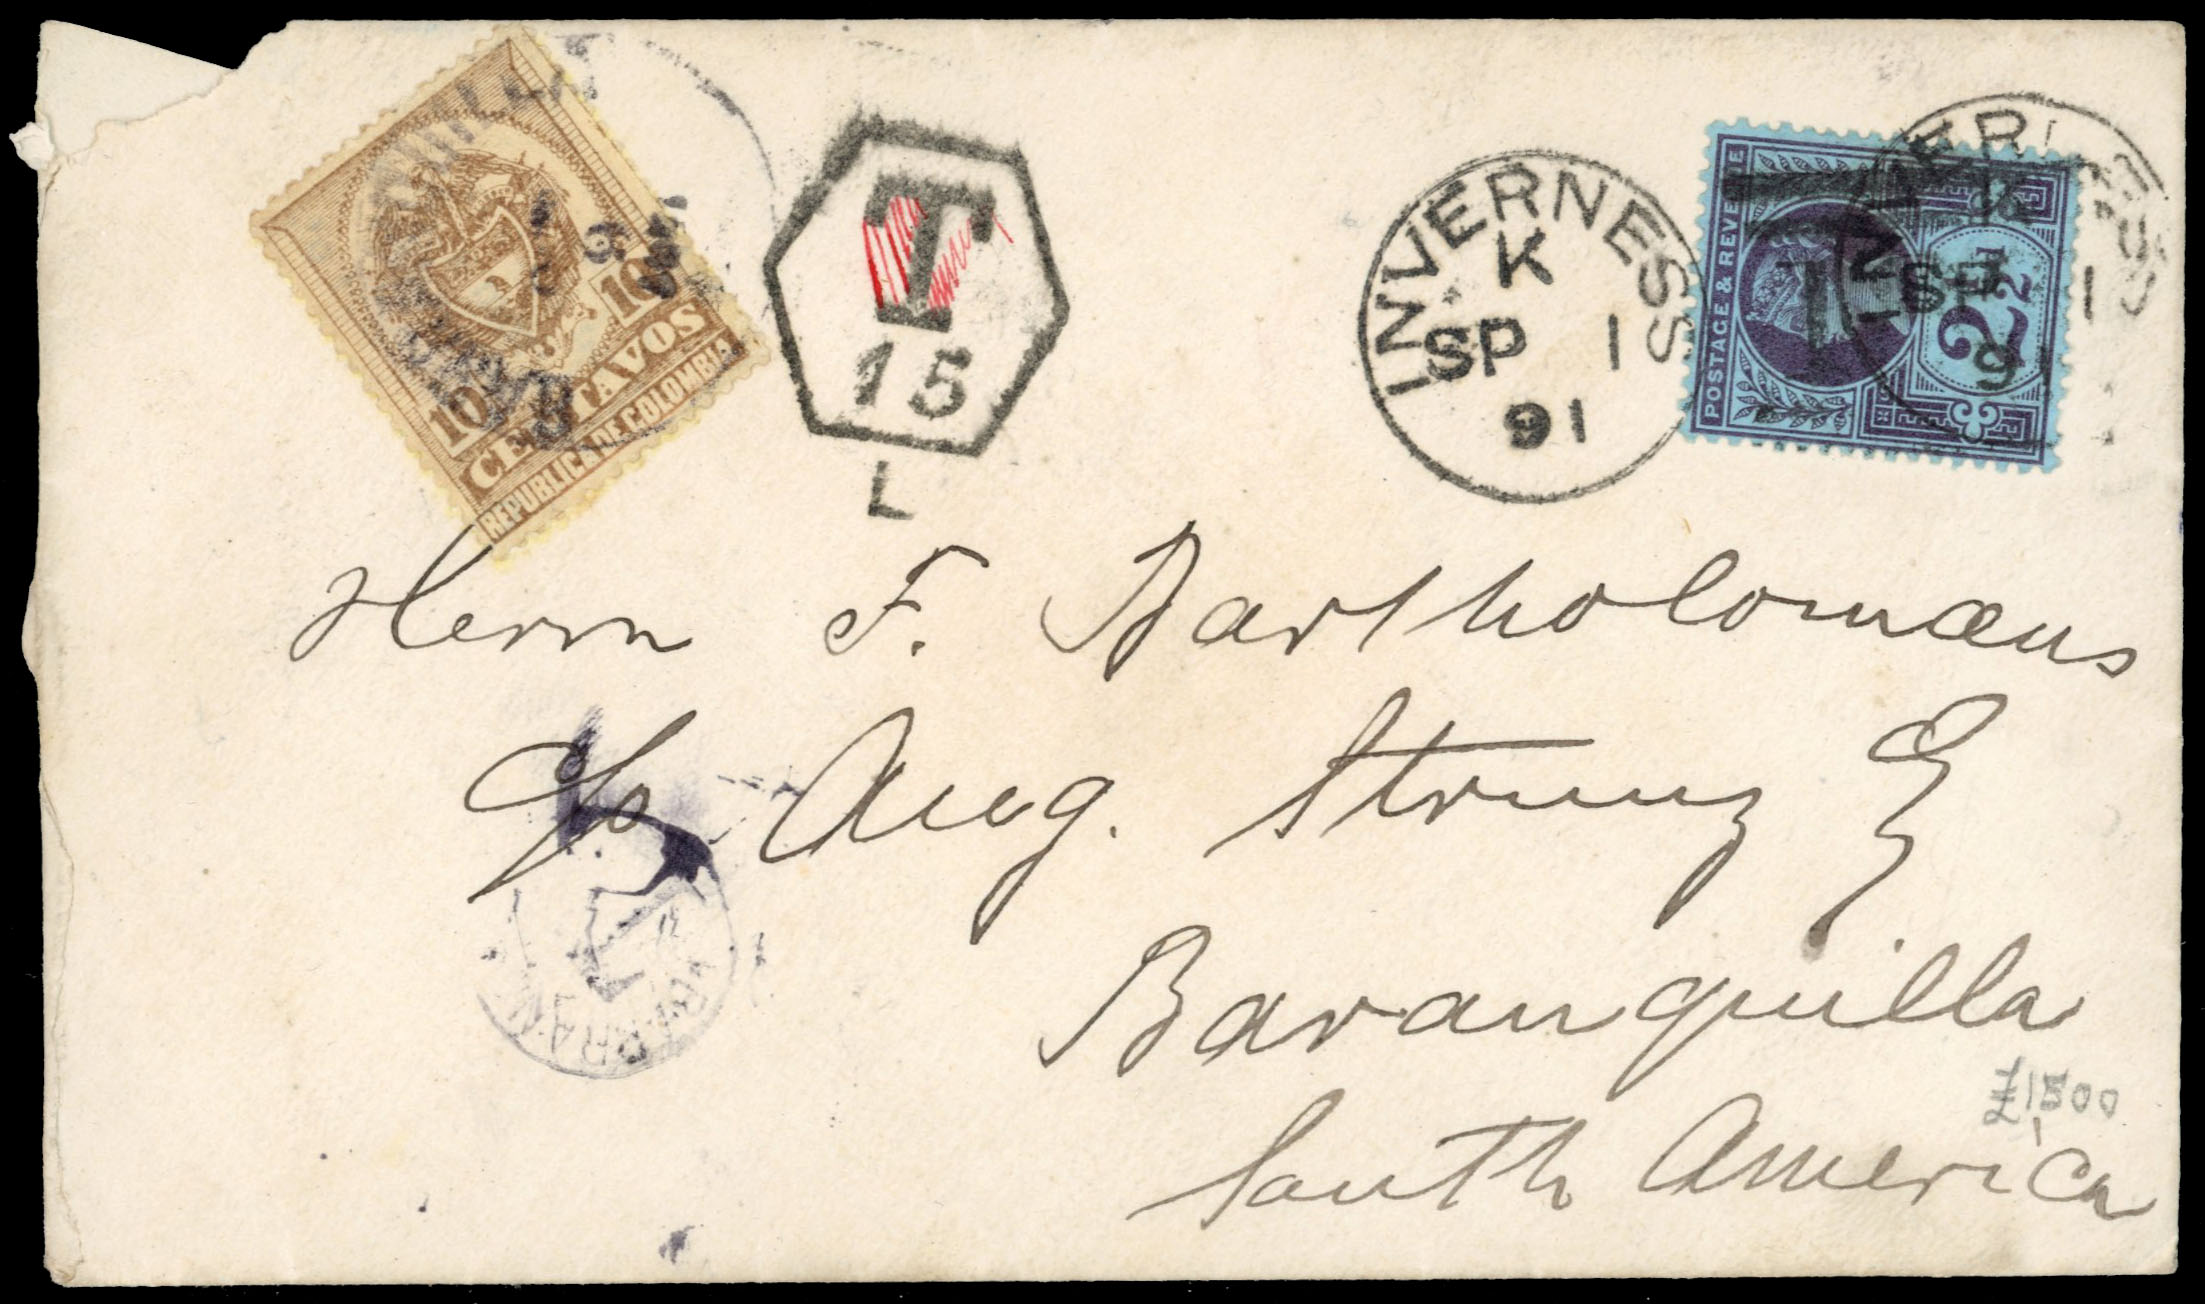 10 10
CENTAVOS
REPUBLICA DE COLOMBIA
T
15
L
INVERNESS
K
SP 1
91
POSTAGE & REVE
2½
INVERNESS
K
SP 1
91
Herrn F. Bartholomæus
c/o Aug. Strunz E
Baranquilla
South America
£1500